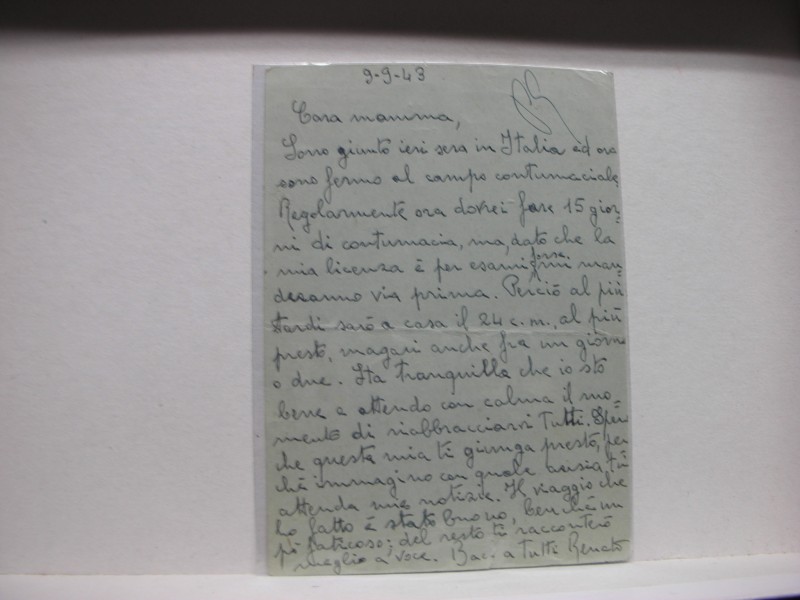 9-9-43
Cara mamma,
Sono giunto ieri sera in Italia ed ora
sono fermo al campo contumaciale.
Regolarmente ora dovrei fare 15 gior=
ni di contumacia, ma, dato che la
mia licenza è per esami forse mi man=
deranno via prima. Perciò al più
tardi sarò a casa il 24 c.m., al più
presto, magari anche fra un giorno
o due. Sta tranquilla che io sto
bene e attendo con calma il mo=
mento di riabbracciarvi tutti. Spero
che questa mia ti giunga presto, per
chè immagino con quale ansia tu
attenda mie notizie. Il viaggio che
ho fatto è stato buono, benchè un
pò faticoso; del resto ti racconterò
meglio a voce. Baci a tutti Renato